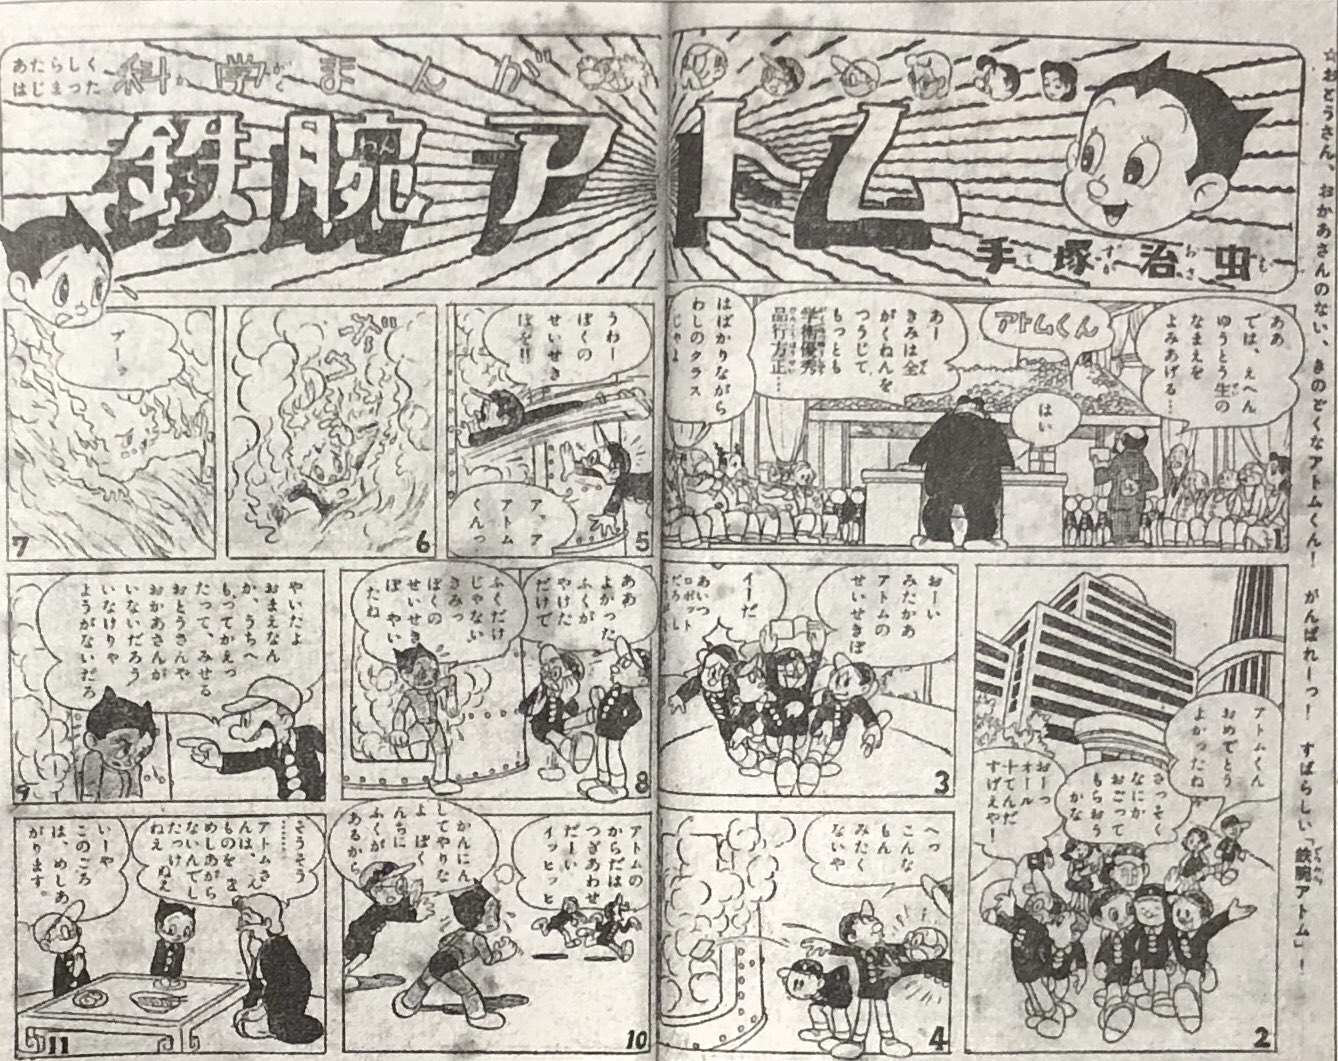 あたらしく
はじまった
科学まんが
鉄腕アトム
手塚治虫
☆おとうさん、おかあさんのない、きのどくなアトムくん！　がんばれーっ！　すばらしい「鉄腕アトム」！
ああ
では、えへん
ゆうとう生の
なまえを
よみあげる…
アトムくん
はい
あー
きみは全
がくねんを
つうじて
もっとも
学術優秀
品行方正…
はばかりながら
わしのクラス
じゃよ
1
アトムくん
おめでとう
よかったね
さっそく
なにか
おごって
もらおう
かな
おーっ
オール
十てんだ
すげえや！
2
おーい
みたかあ
アトムの
せいせきぼ
イーだ
あいつ
ロボット
だろ
3
へっ
こんな
もん
みたく
ないや
4
うわー
ぼくの
せいせき
ぼを！！
ア、ア
アトム
くんっ
5
6
プーッ
7
ああ
よかった
ふくが
やけた
だけで
ふくだけ
じゃない
きみっ
ぼくの
せいせき
ぼ　やい
たね
8
やいたよ
おまえなん
か、うちへ
もってかえっ
たって、みせる
おとうさんや
おかあさんが
いないだろう
いなけりゃ
ようがないだろ
9
アトムの
からだは
つぎあわせ
だーい
イッヒッヒ
かんにん
してやりな
よ　ぼく
んちに
ふくが
あるから
10
そうそう
……
アトムさ
んは、
ものを
めしあがら
ないんでし
たっけ
ねえ
いーや
このごろ
は、めしあ
がります。
11